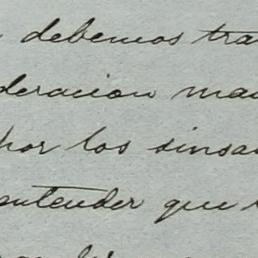 debemos tra
deracion ma
por los sinsa
entender que